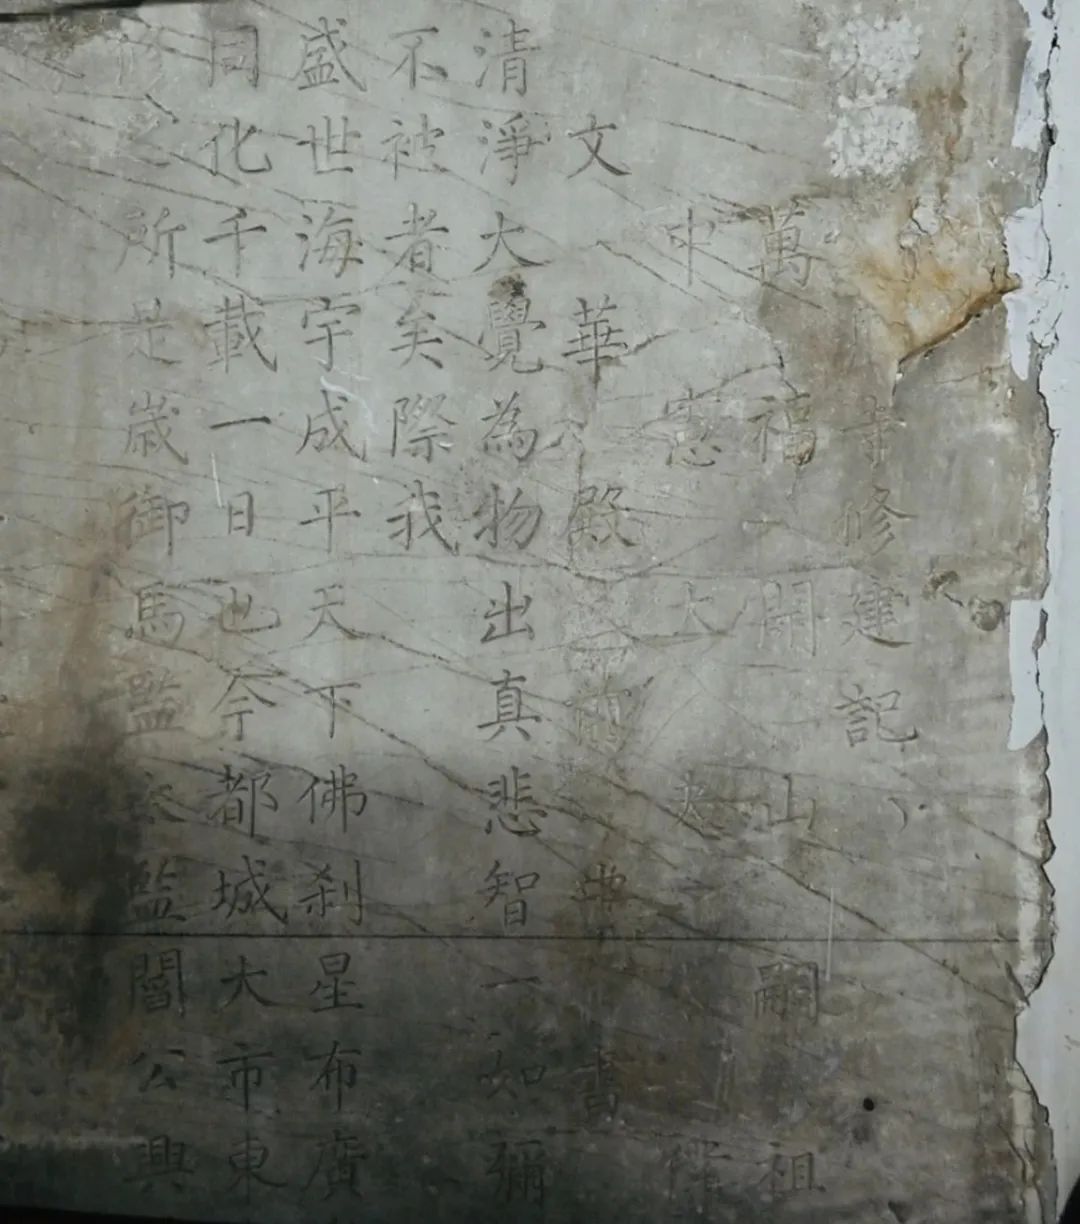 寺修建記
萬福開山嗣祖
中憲大
文華殿書
清淨大覺為物出真悲智一如彌
不被者矣際我
盛世海宇成平天下佛刹星布廣
同化千載一日也今都城大市東
修之所是歲御馬監太監閻公興